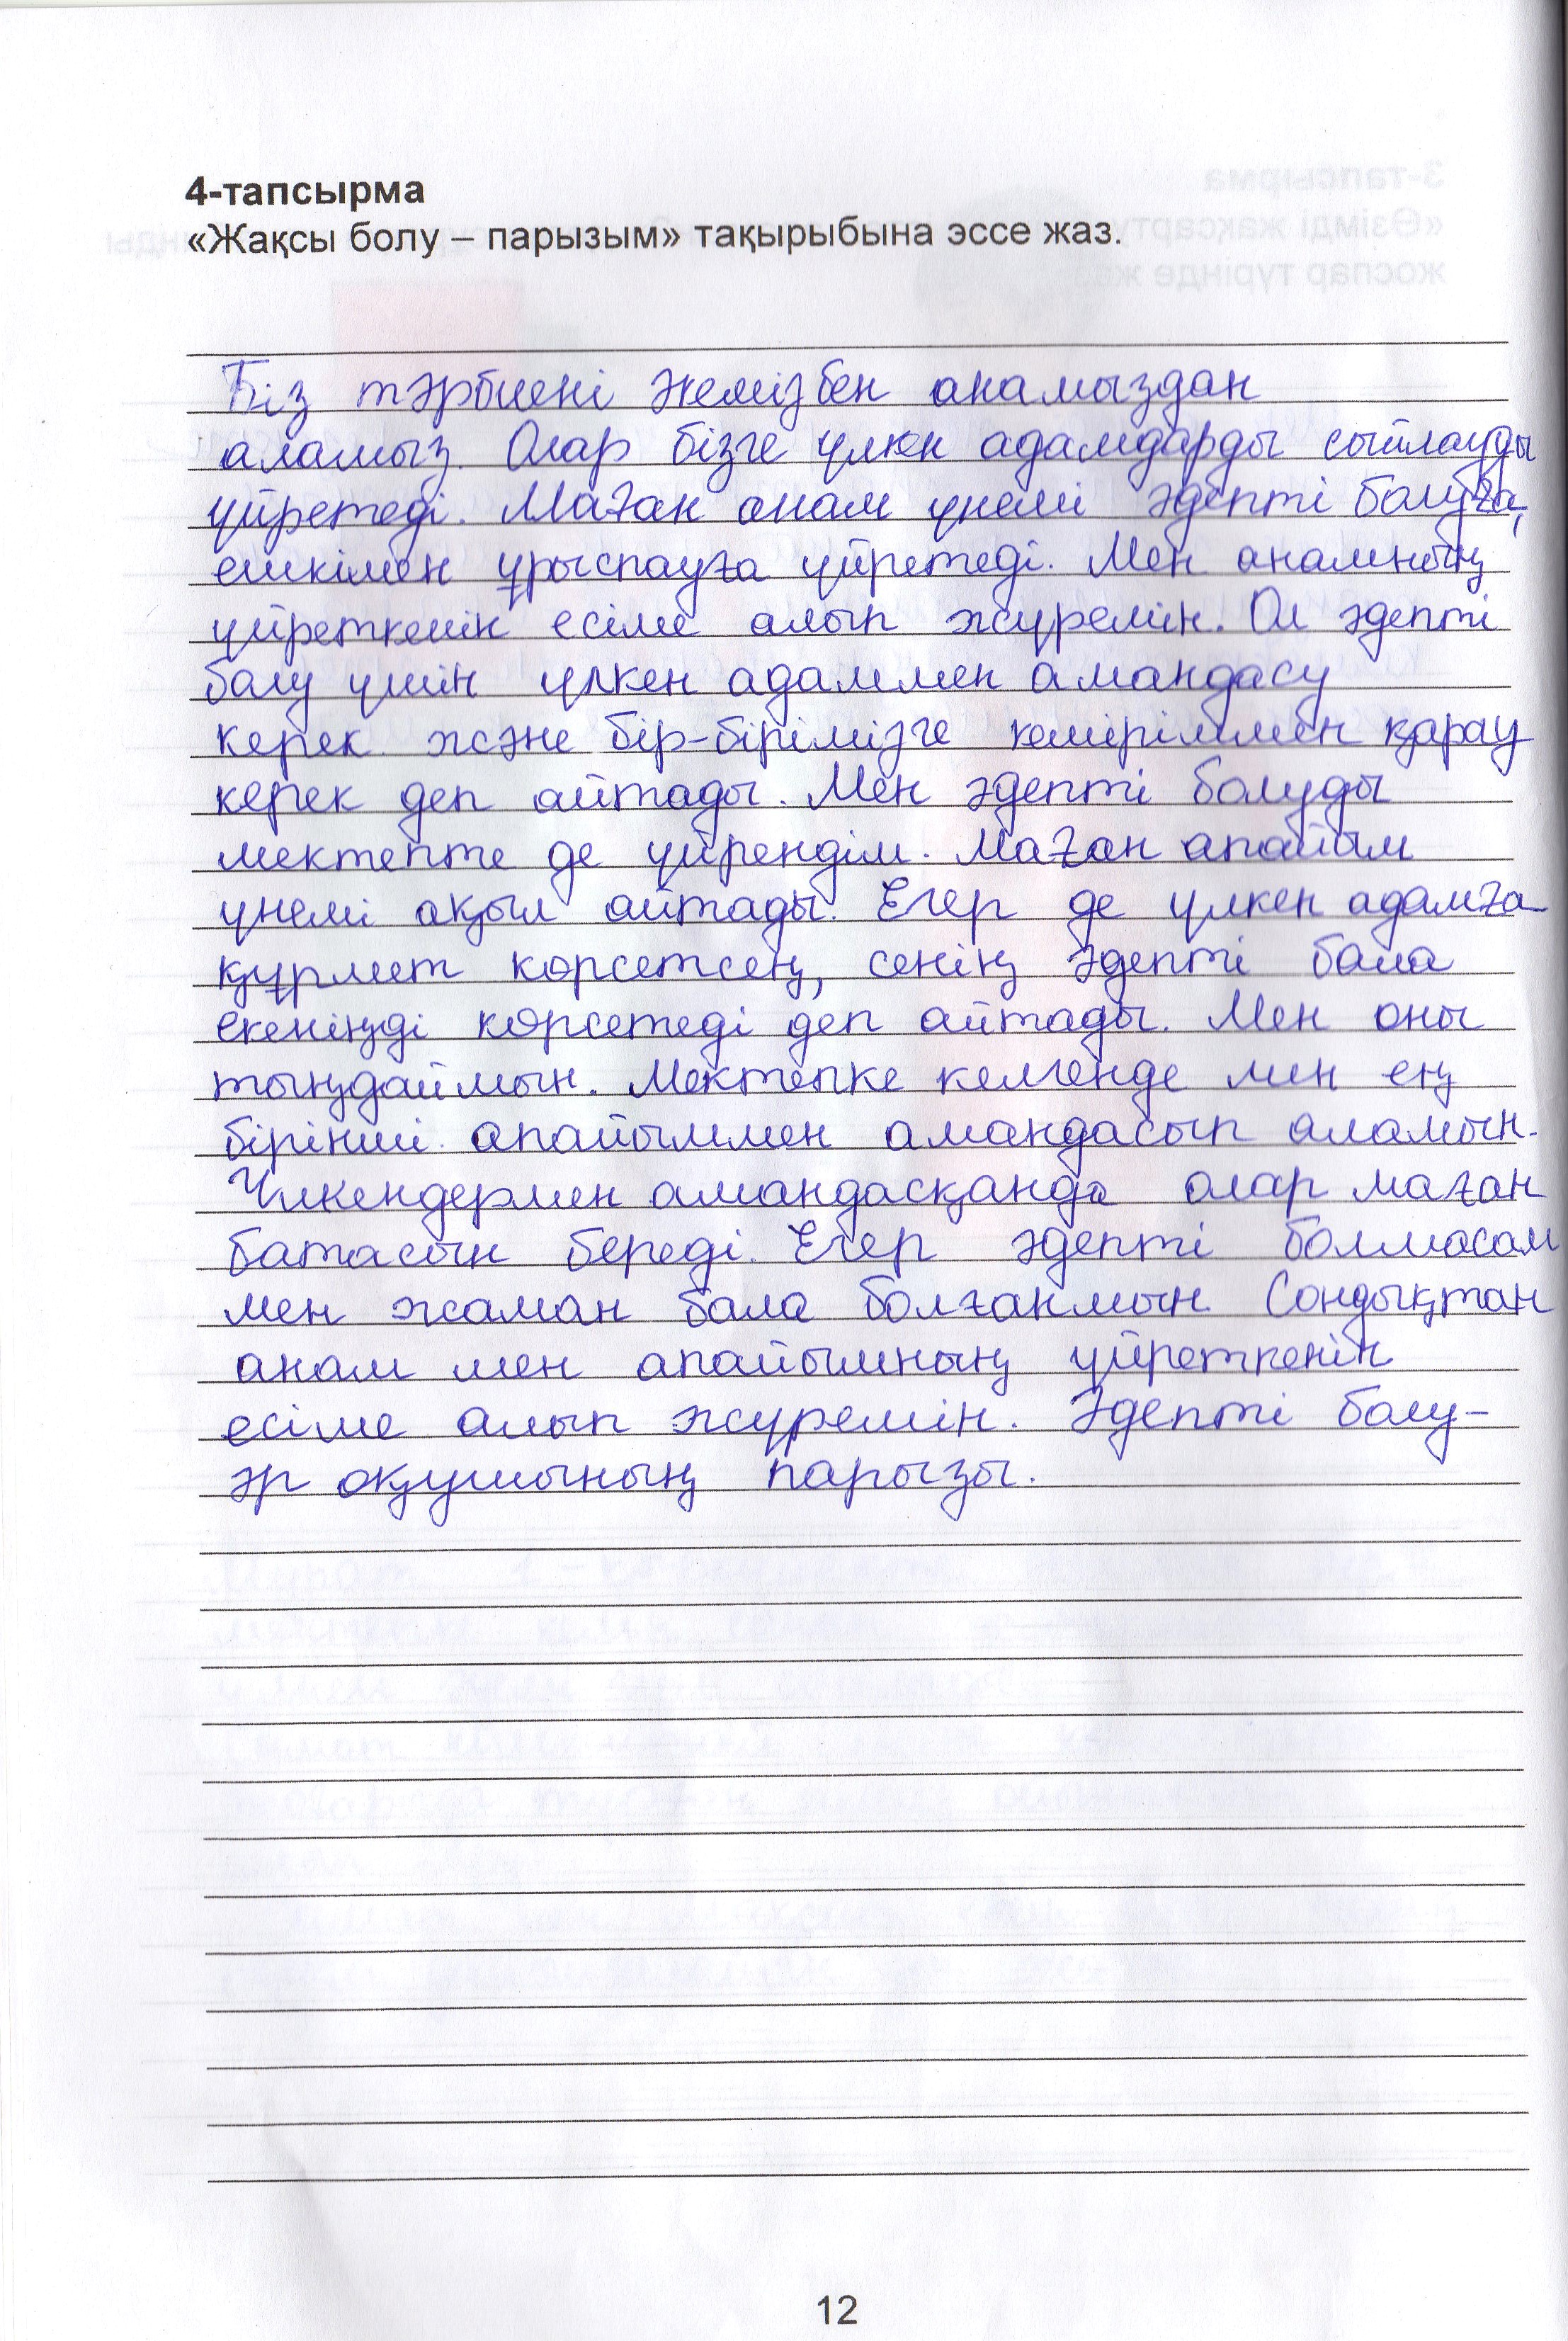 4-тапсырма
«Жақсы болу – парызым» тақырыбына эссе жаз.
Біз тәрбиені әкемізбен анамыздан
аламыз. Олар бізге үлкен адамдарды сыйлауды
үйретеді. Маған анам үнемі әдепті болуға,
ешкімен ұрыспауға үйретеді. Мен анамның
үйреткенін есіме алып жүремін. Ол әдепті
болу үшін үлкен адаммен амандасу
керек және бір-бірімізге кешіріммен қарау
керек деп айтады. Мен әдепті болуды
мектепте де үйрендім. Маған апайым
үнемі ақыл айтады. Егер де үлкен адамға
құрмет көрсетсең, сенің әдепті бала
екеніңді көрсетеді деп айтады. Мен оны
тыңдаймын. Мектепке келгенде мен ең
бірінші апайыммен амандасып аламын.
Үлкендермен амандасқанда олар маған
батасын береді. Егер әдепті болмасам
мен жаман бала болғанмын. Сондықтан
анам мен апайымның үйреткенін
есіме алып жүремін. Әдепті болу-
әр оқушының парызы.
12